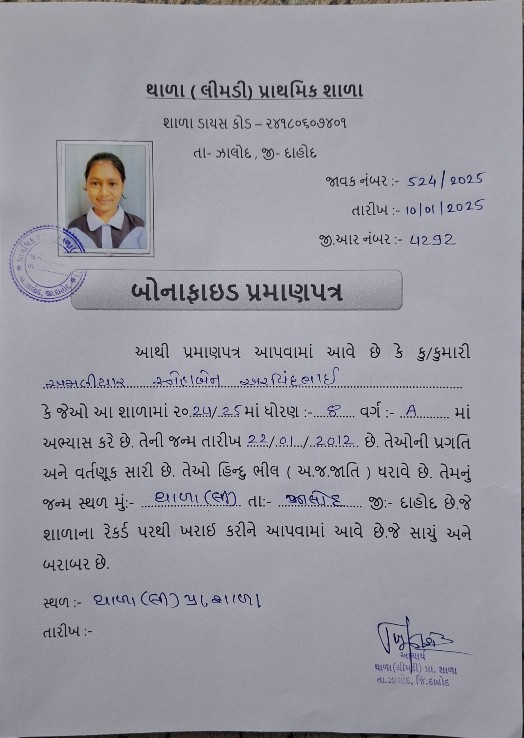 થાળા ( લીમડી) પ્રાથમિક શાળા
શાળા ડાયસ કોડ – ૨૪૧૮૦૬૦૭૪૦૧
તા- ઝાલોદ , જી- દાહોદ
જાવક નંબર :- 524/2025
તારીખ :- 10/01/2025
જી.આર નંબર :- 4292
બોનાફાઇડ પ્રમાણપત્ર
આથી પ્રમાણપત્ર આપવામાં આવે છે કે કુ/કુમારી
અમલીયાર સ્નેહાબેન અરવિંદભાઈ
કે જેઓ આ શાળામાં ૨૦24/25માં ધોરણ :- 8 વર્ગ :- A માં
અભ્યાસ કરે છે. તેની જન્મ તારીખ 22/01/2012 છે. તેઓની પ્રગતિ
અને વર્તણૂક સારી છે. તેઓ હિન્દુ ભીલ ( અ.જ.જાતિ ) ધરાવે છે. તેમનું
જન્મ સ્થળ મું:- થાળા(લી) તા:- ઝાલોદ જી:- દાહોદ છે.જે
શાળાના રેકર્ડ પરથી ખરાઈ કરીને આપવામાં આવે છે.જે સાચું અને
બરાબર છે.
સ્થળ :- થાળા(લી) પ્રા.શાળા
તારીખ :-
આચાર્ય
થાળા(લીમડી) પ્રા. શાળા
તા.ઝાલોદ, જિ.દાહોદ